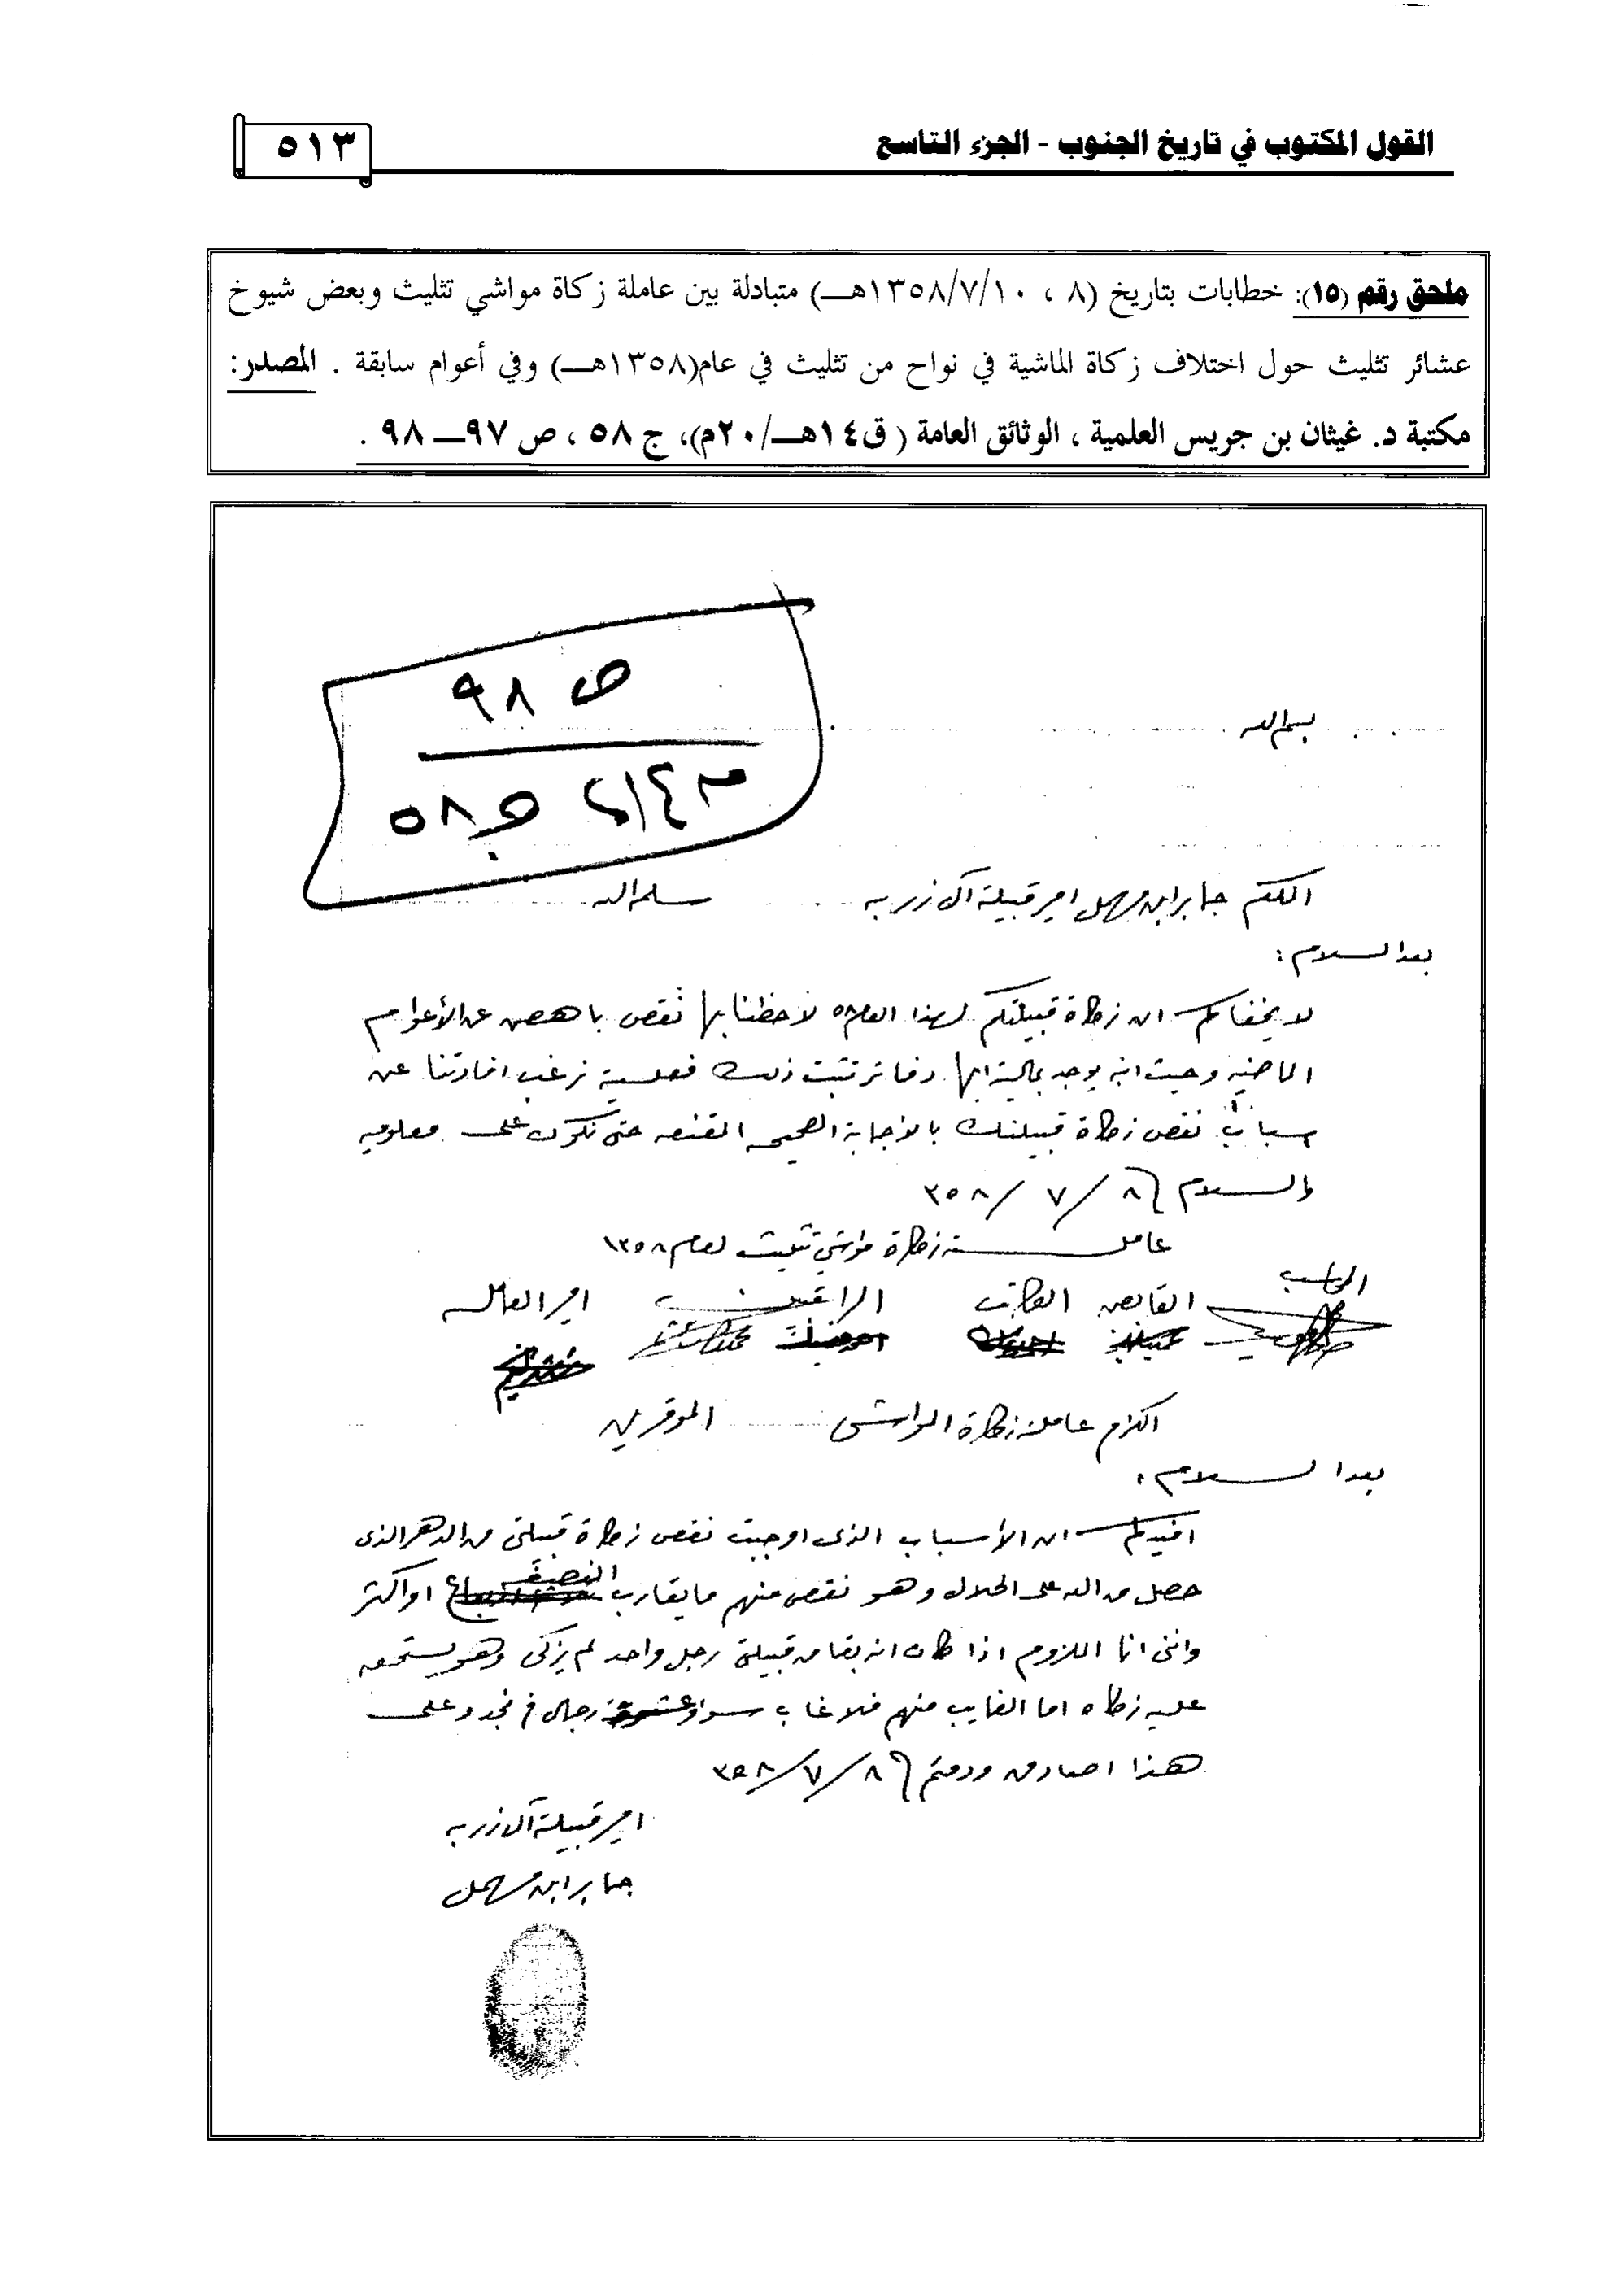 القول المكتوب في تاريخ الجنوب - الجزء التاسع
٥١٣
ملحق رقم (١٥): خطابات بتاريخ (٨ ، ١٣٥٨/٧/١٠هـ) متبادلة بين عاملة زكاة مواشي تثليث وبعض شيوخ
عشائر تثليث حول اختلاف زكاة الماشية في نواح من تثليث في عام(١٣٥٨هـ) وفي أعوام سابقة . المصدر:
مكتبة د. غيثان بن جريس العلمية ، الوثائق العامة ( ق١٤هـ/٢٠م)، ج ٥٨ ، ص ٩٧ــ ٩٨ .
ص ٩٨
ج ٥٨
بسم الله
المكرم جابر ابن مهمل امير قبيلة آل زربه سلمه الله
بعد السلام :
لا يخفاكم ان زكاة قبيلتكم لهذا العام ٥٨ لاحظنا بها نقص باهص عن الأعوام
الماضيه وحيث انه يوجد بمالية ابها دفاتر تثبت ذلك فعليه نرغب افادتنا عن
اسباب نقص زكاة قبيلتك بالاجابة الصحيحه المقنعه حتى نكون على معلوميه
والسلام ٨ / ٧ / ٣٥٨
عاملة زكاة مواشي تثليث لعام ١٣٥٨
المحاسب القابض الكاتب امير العامله
الكرام عاملة زكاة المواشى الموقرين
بعد السلام :
افيدكم ان الأسباب الذى اوجبت نقص زكاة قبيلتى من الدهر الذى
حصل من الله على الحلال وهو نقص منهم ما يقارب النصيف او اكثر
واننى انا الملزوم اذا كان انه بقا من قبيلتى رجل واحد لم يزكى وهو يستحق
عليه زكاه اما الغايب منهم فلا غاب سوا رجال في نجد وعلى
هذا اصادق ودمتم ٨ / ٧ / ٣٥٨
امير قبيلة آل زربه
جابر ابن مهمل